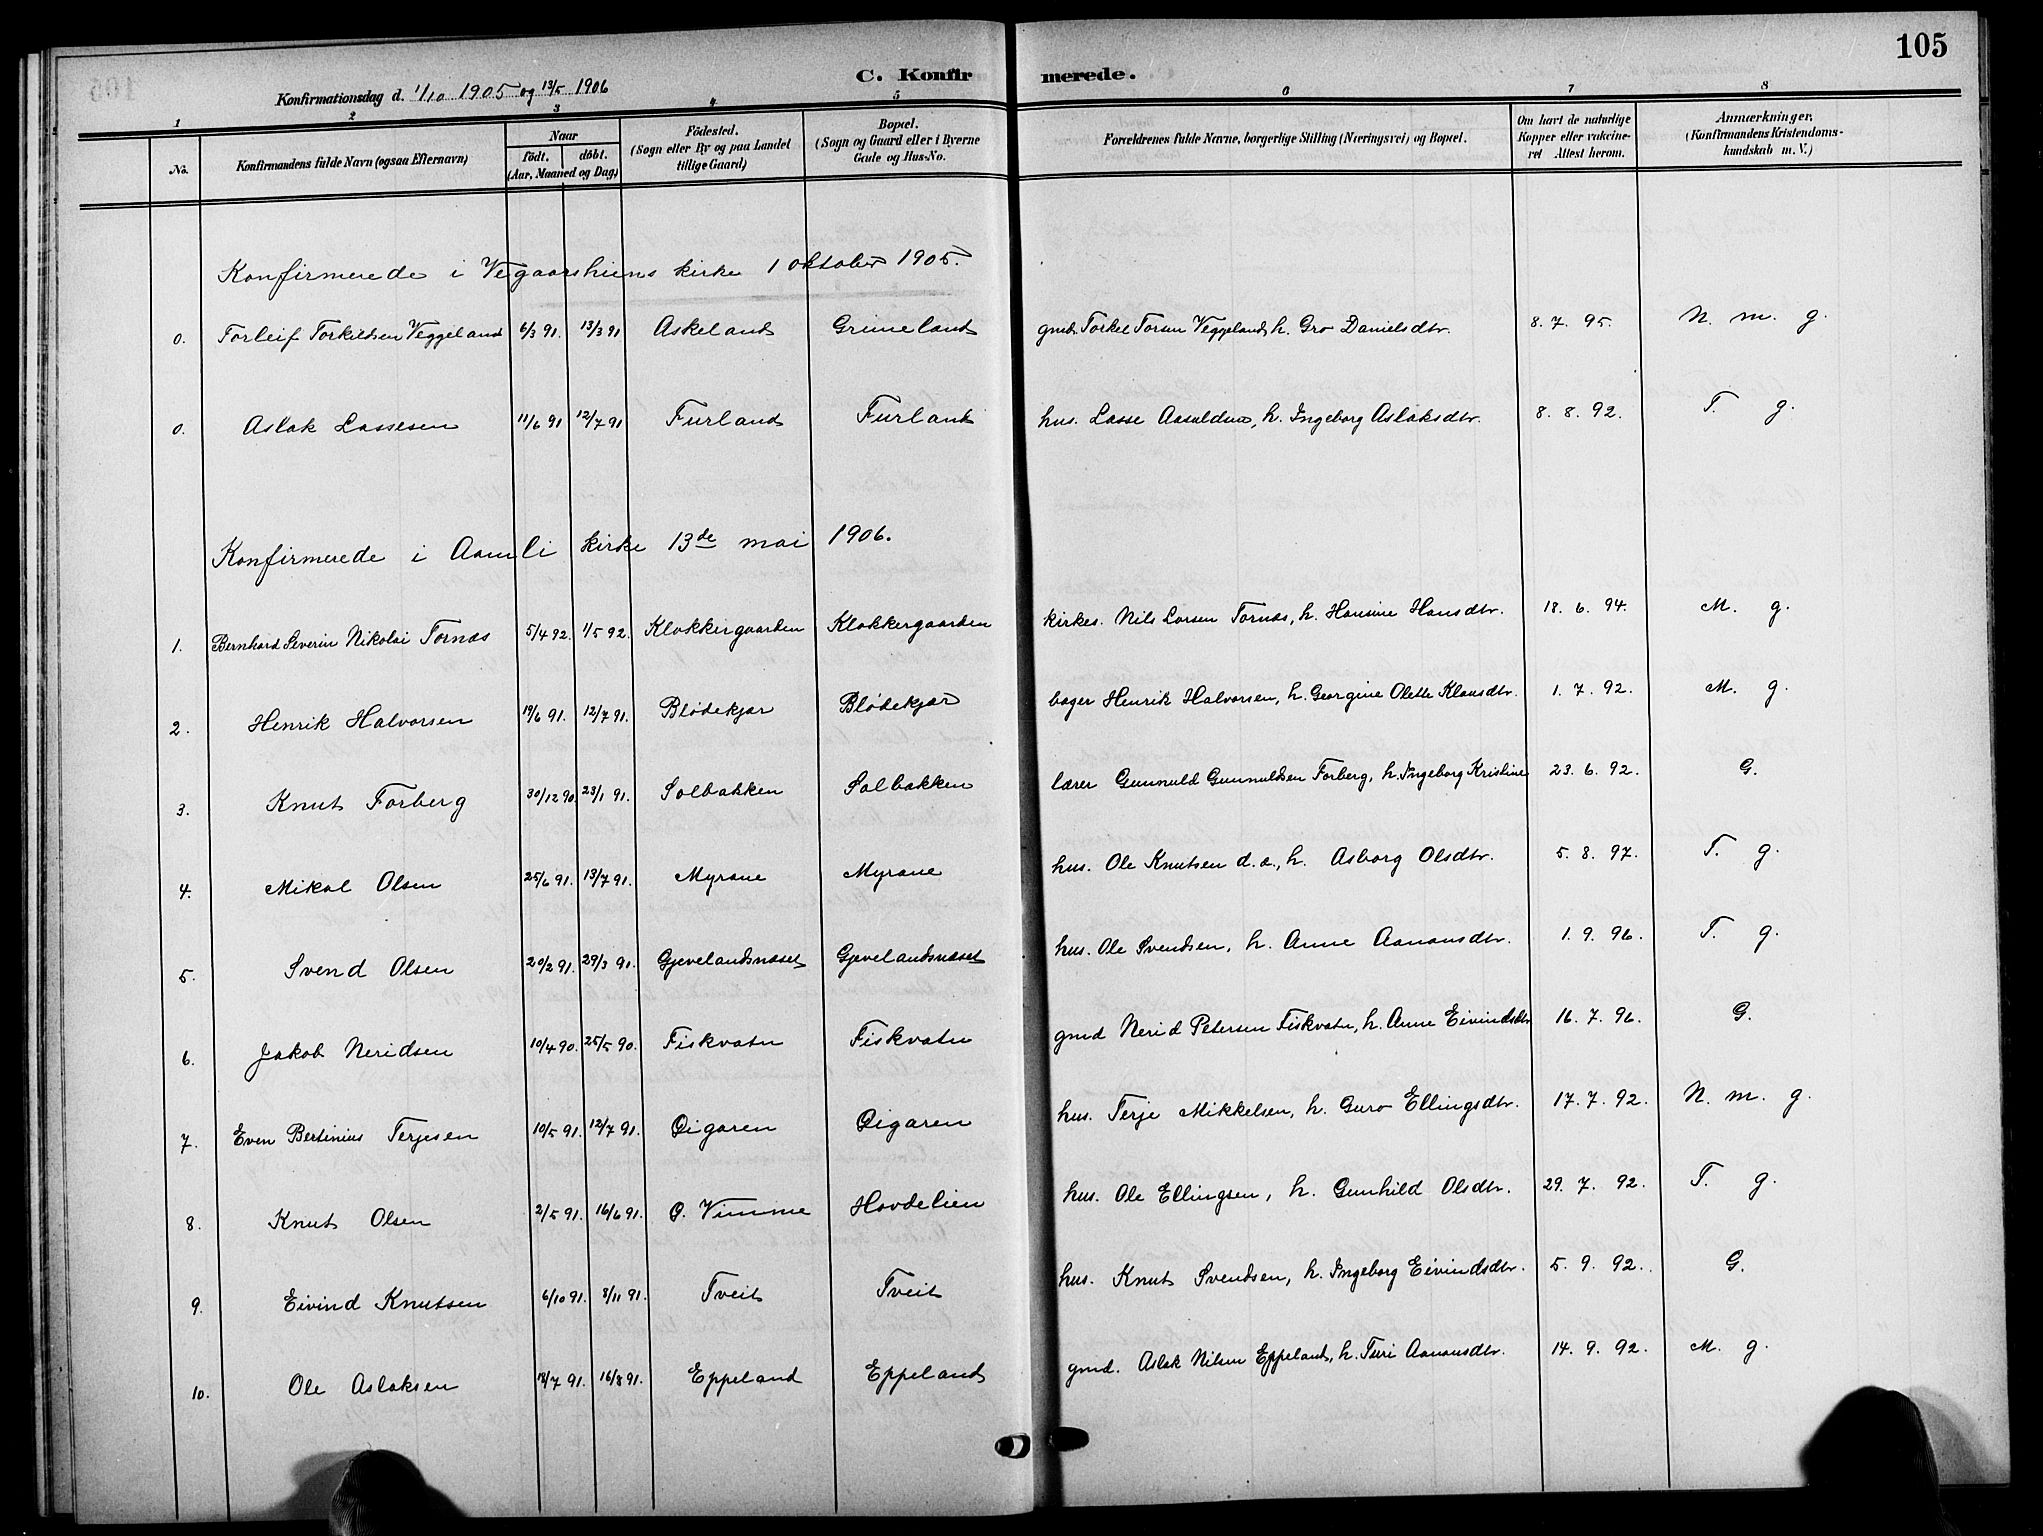 105
C. Konfirmerede.
Konfirmationsdag d. 1/10 1905 og 13/5 1906
1 2 3 4 5 6 7 8
No. Konfirmandens fulde Navn (ogsaa Efternavn) Naar født. døbt. (Aar, Maaned og Dag) Fødested. (Sogn eller By og paa Landet tillige Gaard) Bopæl. (Sogn og Gaard eller i Byerne Gade og Hus-No. Forældrenes fulde Navne, borgerlige Stilling (Næringsvei) og Bopæl. Om havt de naturlige Kopper eller vakcineret Attest herom. Anmærkninger, (Konfirmandens Kristendomskundskab m. V.)
Konfirmerede i Vegaarsheiens kirke 1 oktober 1905.
0. Torleif Torkildsen Veggeland 6/3 91. 13/3 91 Askeland Grimeland gmd. Torkel Torsen Veggeland, h. Gro Danielsdtr. 8. 7. 95. N. m. g.
0. Aslak Lassesen 11/6 91 12/7 91 Furland Furland hus. Lasse Aasuldsen, h. Ingeborg Aslaksdtr. 8. 8. 92. T. g.
Konfirmerede i Aamli kirke 13de mai 1906.
1. Bernhard Severin Nikolai Tornæs 5/4 92. 1/5 92. Klokkergaarden Klokkergaarden kirkes. Nils Larsen Tornæs, h. Hansine Hansdtr. 18. 6. 94. M. g.
2. Henrik Halvorsen 19/6 91. 12/7 91. Blødekjær Blødekjær bager Henrik Halvorsen, h. Georgine Olette Klausdtr. 1. 7. 92. M. g.
3. Knut Forberg 30/12 90. 23/1 91. Solbakken Solbakken lærer Gunnuld Gunnuldsen Forberg, h. Ingeborg Kristine 23. 6. 92. G.
4. Mikal Olsen 25/6 91. 13/7 91. Myrane Myrane hus. Ole Knutsen d. æ., h. Asborg Olsdtr. 5. 8. 97. T. g.
5. Svend Olsen 20/2 91. 29/3 91. Gjevelandsnæset Gjevelandsnæset hus. Ole Svendsen, h. Anne Aanonsdtr. 1. 9. 96. T. g.
6. Jakob Neridsen 10/4 90. 25/5 90. Fiskvatn Fiskvatn gmd Nerid Petersen Fiskvatn, h. Anne Eivindsdtr 16. 7. 96. G.
7. Even Bertinius Terjesen 10/5 91. 12/7 91. Øigaren Øigaren hus. Terje Mikkelsen, h. Guro Ellingsdtr. 17. 7. 92. N. m. g.
8. Knut Olsen 2/5 91. 16/6 91. Ø. Vimme Hovdelien hus. Ole Ellingsen, h. Gunhild Olsdtr. 29. 7. 92. T. g.
9. Eivind Knutsen 6/10 91. 8/11 91. Tveit Tveit hus. Knut Svendsen, h. Ingeborg Eivindsdtr. 5. 9. 92. G.
10. Ole Aslaksen 18/7 91. 16/8 91. Eppeland Eppeland gmd. Aslak Nilsen Eppeland, h. Turi Aanonsdtr. 14. 9. 92. M. g.